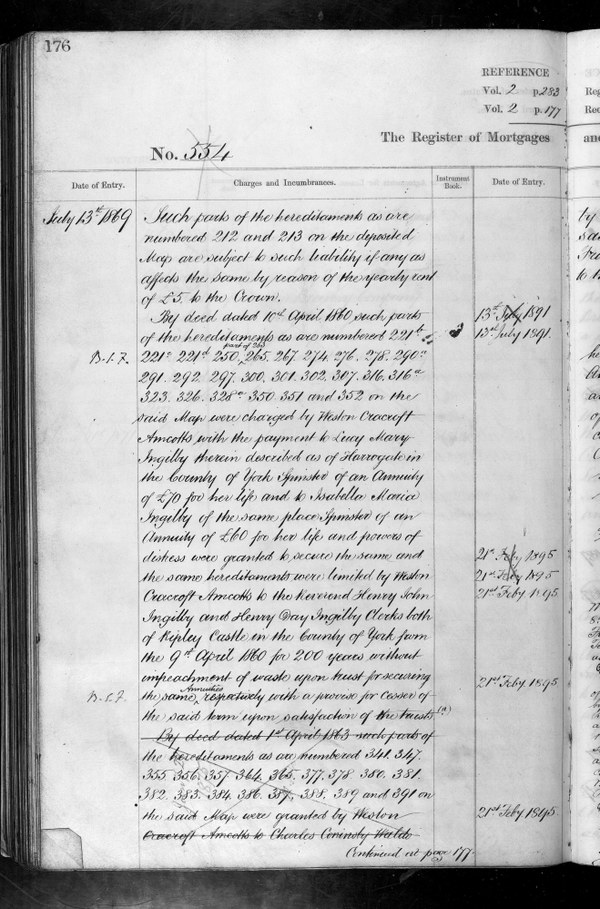 176
REFERENCE
Vol. 2 p.283
Vol. 2 p.177
The Register of Mortgages
No. 554
Date of Entry.
Charges and Incumbrances.
Instrument Book.
Date of Entry.
July 13th 1869
Such parts of the hereditaments as are
numbered 212 and 213 on the deposited
Map are subject to such liability if any as
affects the same by reason of the yearly rent
of £5. to the Crown.
By deed dated 10th April 1860 such parts
of the hereditaments as are numbered 221
221 221 250, part of 263 265, 267, 274, 276, 278, 290
291. 292. 297. 300. 301. 302. 307. 316. 316
323. 326. 328 350. 351 and 352 on the
said Map were charged by Weston Cracroft
Amcotts with the payment to Lucy Mary
Ingilby therein described as of Harrogate in
the County of York Spinster of an Annuity
of £70 for her life and to Isabella Maria
Ingilby of the same place Spinster of an
Annuity of £60 for her life and powers of
distress were granted to secure the same and
the same hereditaments were limited by Weston
Cracroft Amcotts to the Reverend Henry John
Ingilby and Henry Day Ingilby Clerks both
of Ripley Castle in the County of York from
the 9th April 1860 for 200 years without
impeachment of waste upon trust for securing
the same Annuities respectively with a proviso for Cesser of
the said term upon satisfaction of the trusts
By deed dated 1st April 1863 such parts of
the hereditaments as are numbered 341. 347.
355. 356. 357. 364. 365. 377. 378. 380. 381.
382. 383. 384. 386. 387. 388. 389 and 391 on
the said Map were granted by Weston
Cracroft Amcotts to Charles Coningsby Walds
Continued at page 177
13th July 1891
13th July 1891.
21st Feby 1895
21st Feby 1895
21st Feby 1895
21st Feby 1895
21st Feby 1895